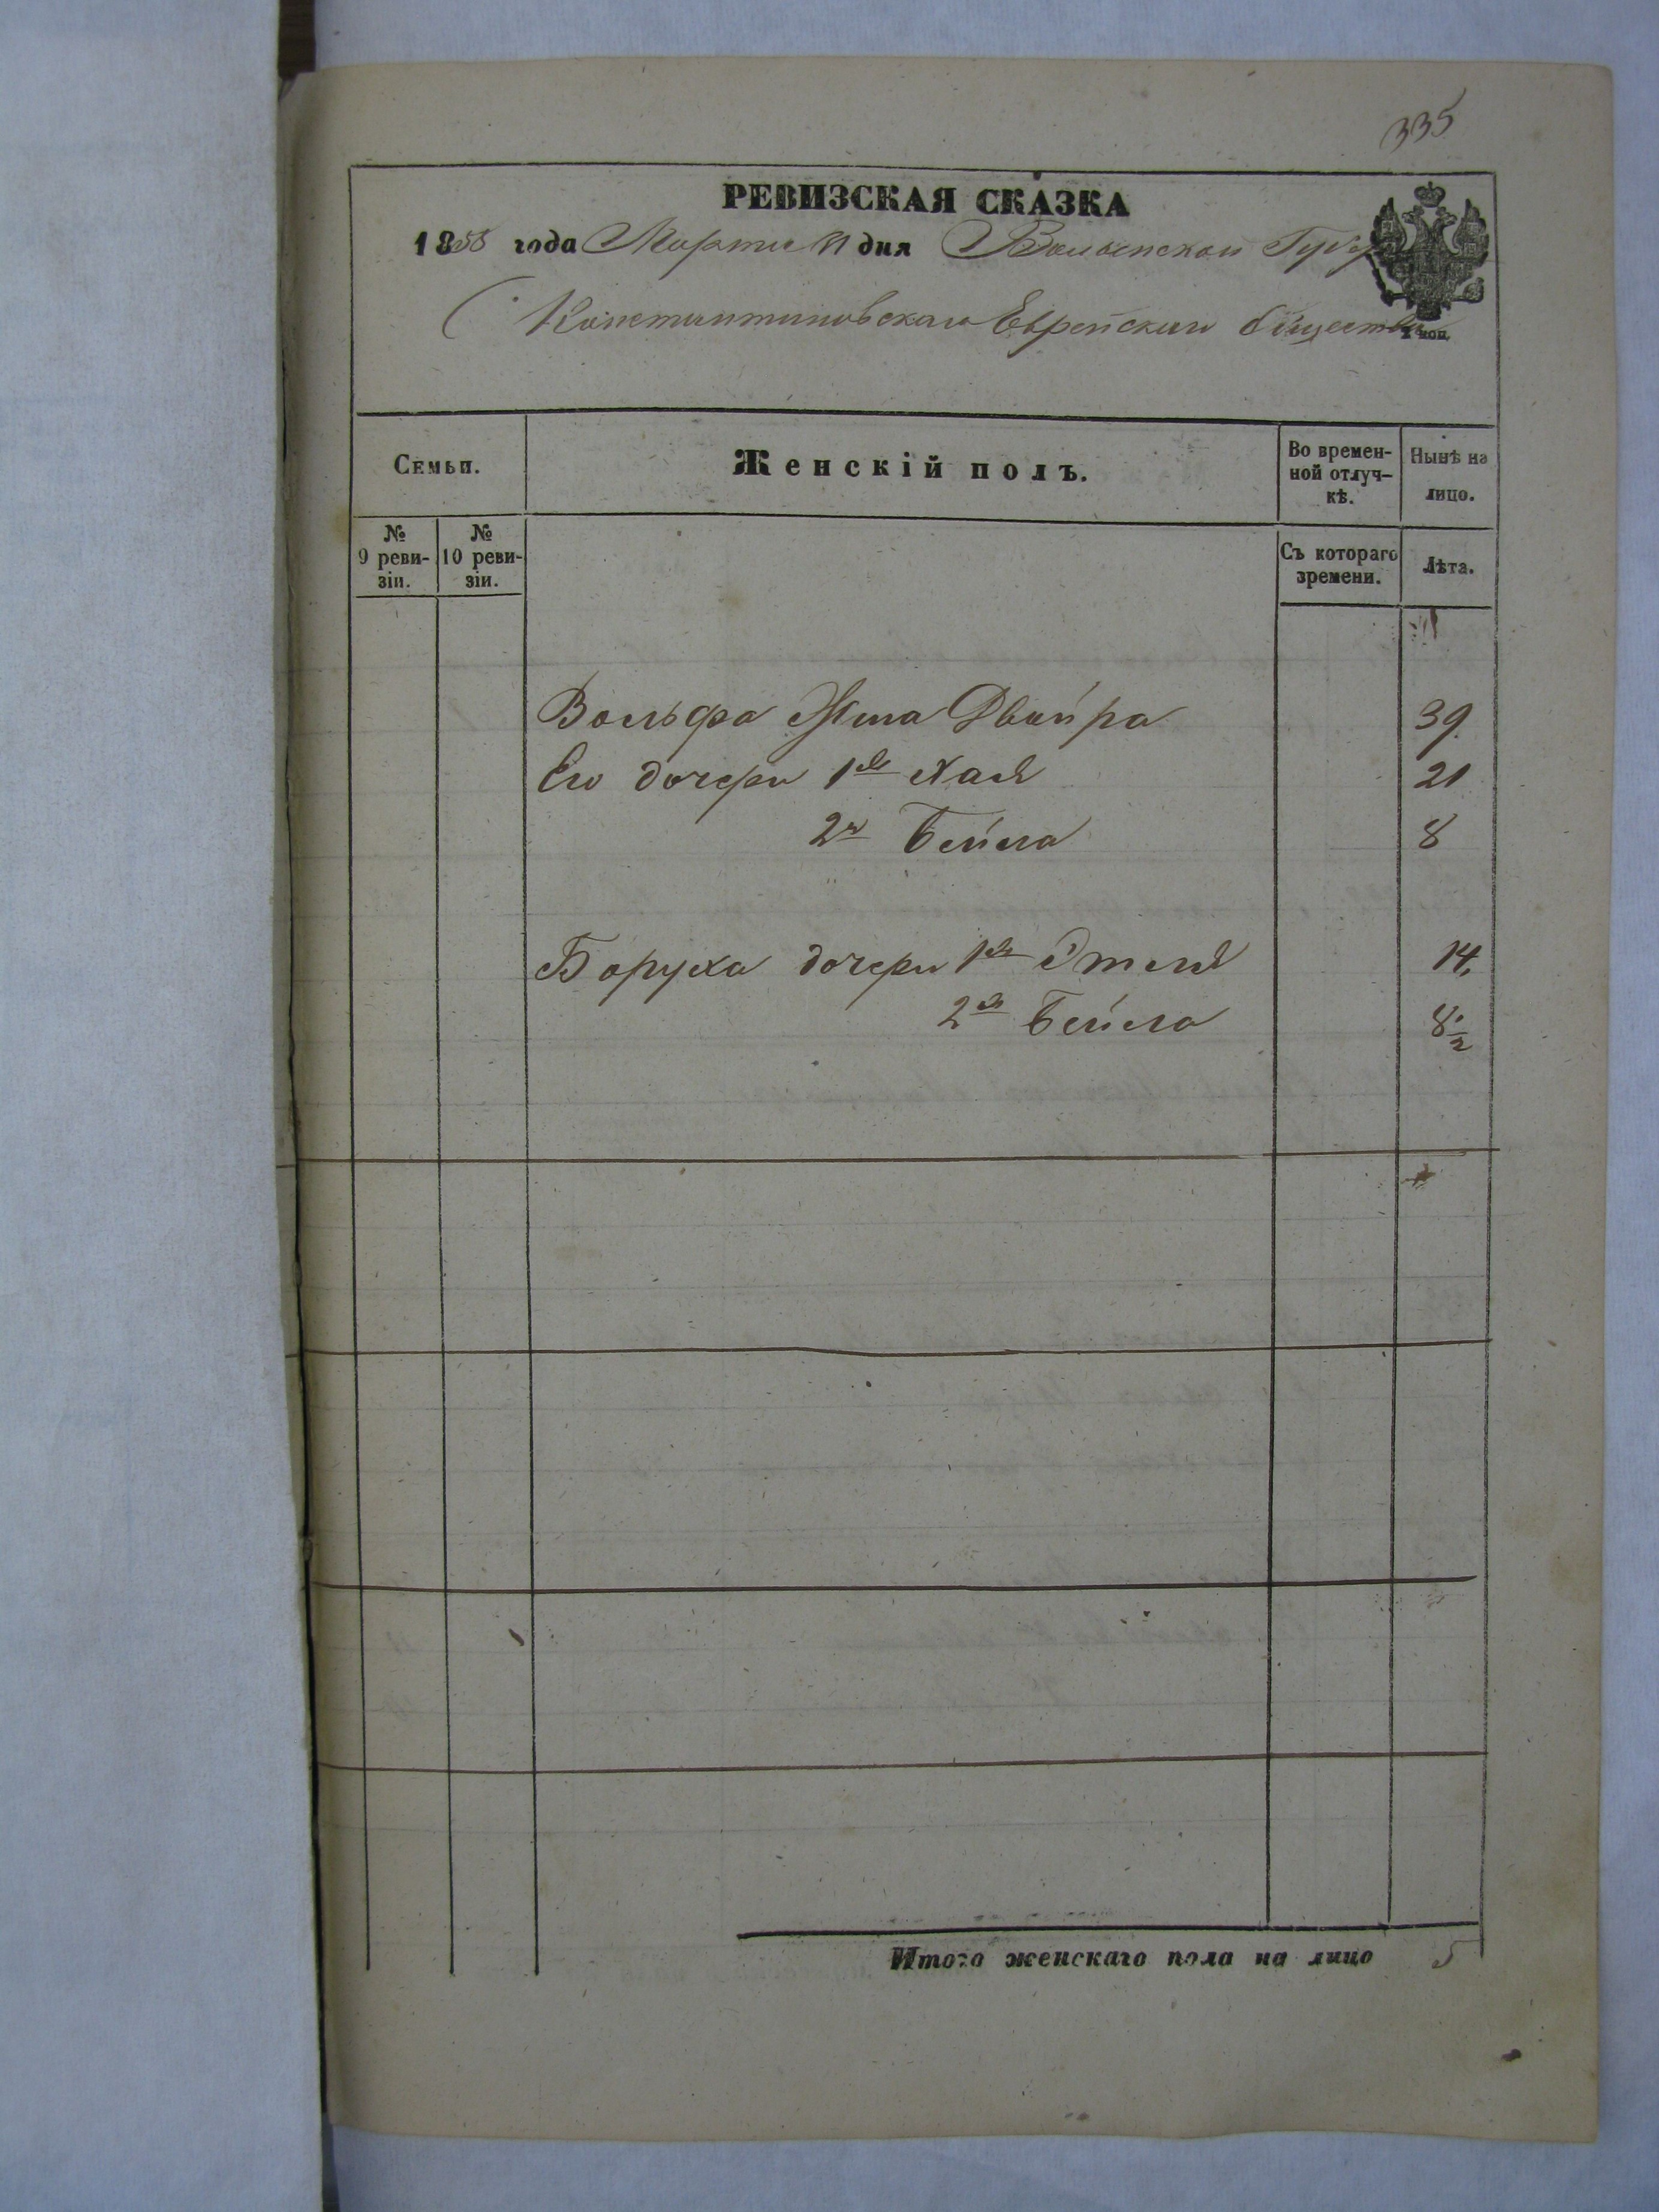 335
РЕВИЗСКАЯ СКАЗКА
1858 года Марта 11 дня Волынской Губер
Константиновскаго Еврейскаго Общества
коп.
Семьи.
Женскій полъ.
Во времен-
ной отлуч-
кѣ.
Нынѣ на
лицо.
№
9 реви-
зіи.
№
10 реви-
зіи.
Съ котораго
времени.
Лѣта.
Вольфа Жена Двейра 39
Его дочери 1я Хая 21
2я Бейла 8
Боруха дочери 1я Этля 14
2я Бейла 8 1/2
Итого женскаго пола на лицо 5